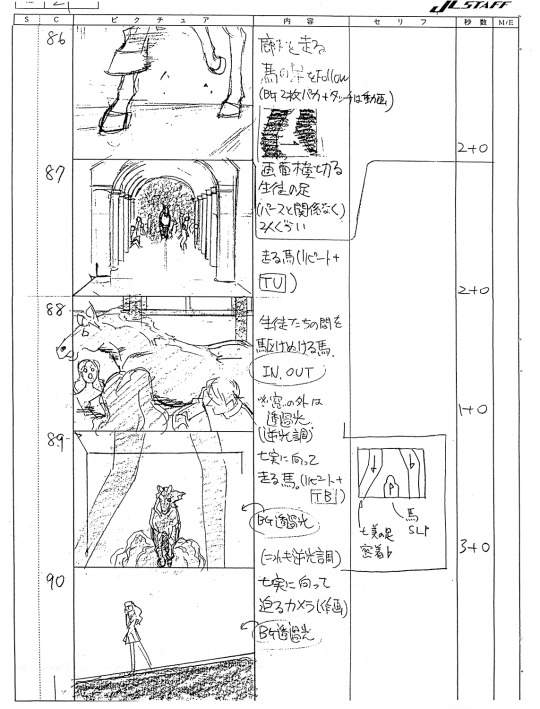 J.C.STAFF
S C ピクチュア 内容 セリフ 秒数 M/E
86
廊下を走る
馬の足をFollow
(BG 2枚パカ+タッチは動画)
2+0
87
画面横切る
生徒の足
(パースと関係なく)
2人ぐらい
走る馬(リピート+
TU)
2+0
88
生徒たちの間を
駆けぬける馬.
IN. OUT
※窓の外は
透過光
(逆光調)
1+0
89
七実に向って
走る馬。(リピート+
TB)
BG透過光
(これも逆光調)
馬
七実の足
密着
3+0
90
七実に向って
迫るカメラ(作画)
BG透過光